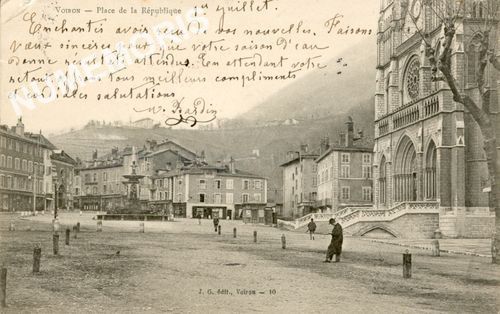 VOIRON – Place de la République
juillet.
Enchantés avoir reçu de vos nouvelles. Faisons
vœux sincères pour que votre saison d'eau
donne résultats attendus. Tout en attendant votre
retour, tous meilleurs compliments
cordiales salutations
J. G. édit., Voiron — 10